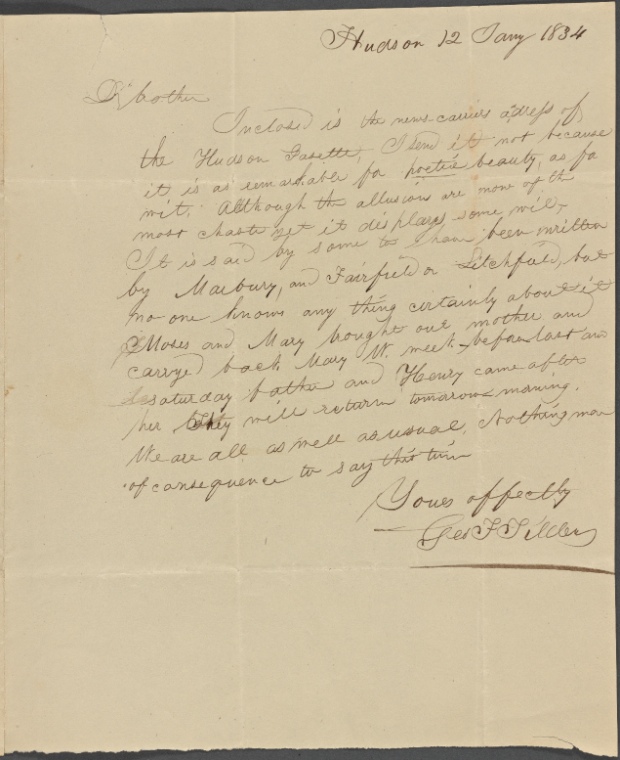 Hudson 12 Jany 1834
Dr brother
Inclosed is the news carriers adress of
the Hudson Gasette, I send it not because
it is as remarkable for poetic beauty, as for
wit. Although the allusions are none of the
most chaste yet it displays some wit.
It is said by some to have been written
by Marbury, and Fairfield or Litchfield, but
no one knows any thing certainly about it
Moses and Mary brought out mother and
carryed back Mary W. week before last and
saturday father and Henry came after
her They will return tomorow morning.
We are all as well as usual. Nothing more
of consequence to say this time
Yours affectly
Geo F Tilden